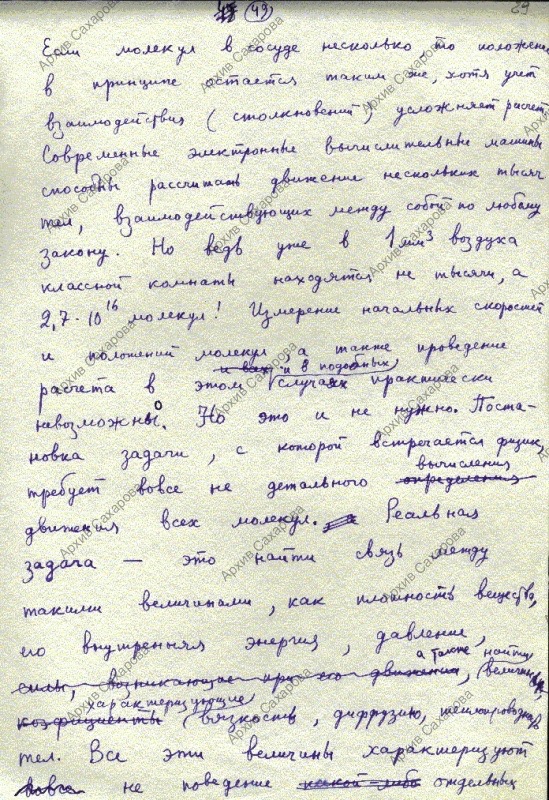 49
29
Если молекул в сосуде несколько, то положение
в принципе остается таким же, хотя учет
взаимодействия (столкновений) усложняет расчет.
Современные электронные вычислительные машины
способны рассчитать движение нескольких тысяч
тел, взаимодействующих между собой по любому
закону. Но ведь уже в 1 мм³ воздуха
классной комнаты находятся не тысячи, а
2,7·10¹⁶ молекул! Измерение начальных скоростей
и положений молекул, а также проведение
и в подобных
расчета в этом случаях практически
невозможно. Но это и не нужно. Поста-
новка задачи, с которой встречается физик,
вычисления
требует вовсе не детального определения
движения всех молекул. Реальная
задача — это найти связь между
такими величинами, как плотность вещества,
его внутренняя энергия, давление,
а также найти
силы, возникающие при его движении, величины,
характеризующие
коэфициенты вязкость, диффузию, теплопроводность
тел. Все эти величины характеризуют
не поведение какой-либо отдельных
Архив Сахарова